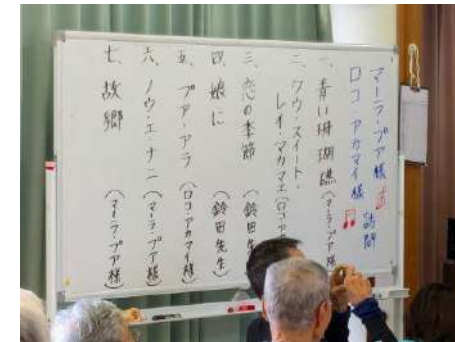 マーラ・プア様
ロコ・アカマイ様 訪問
一、青い珊瑚礁 (マーラ・プア様
二、クウ・スイート・
レイ・マカマエ (ロコ・ア
三、恋の季節 (鈴田先生
四、娘に (鈴田先生)
五、プア・アラ (ロコ・アカマイ様)
六、ノウ・エ・ナニ (マーラ・プア様)
七、故郷 (マーラ・プア様)